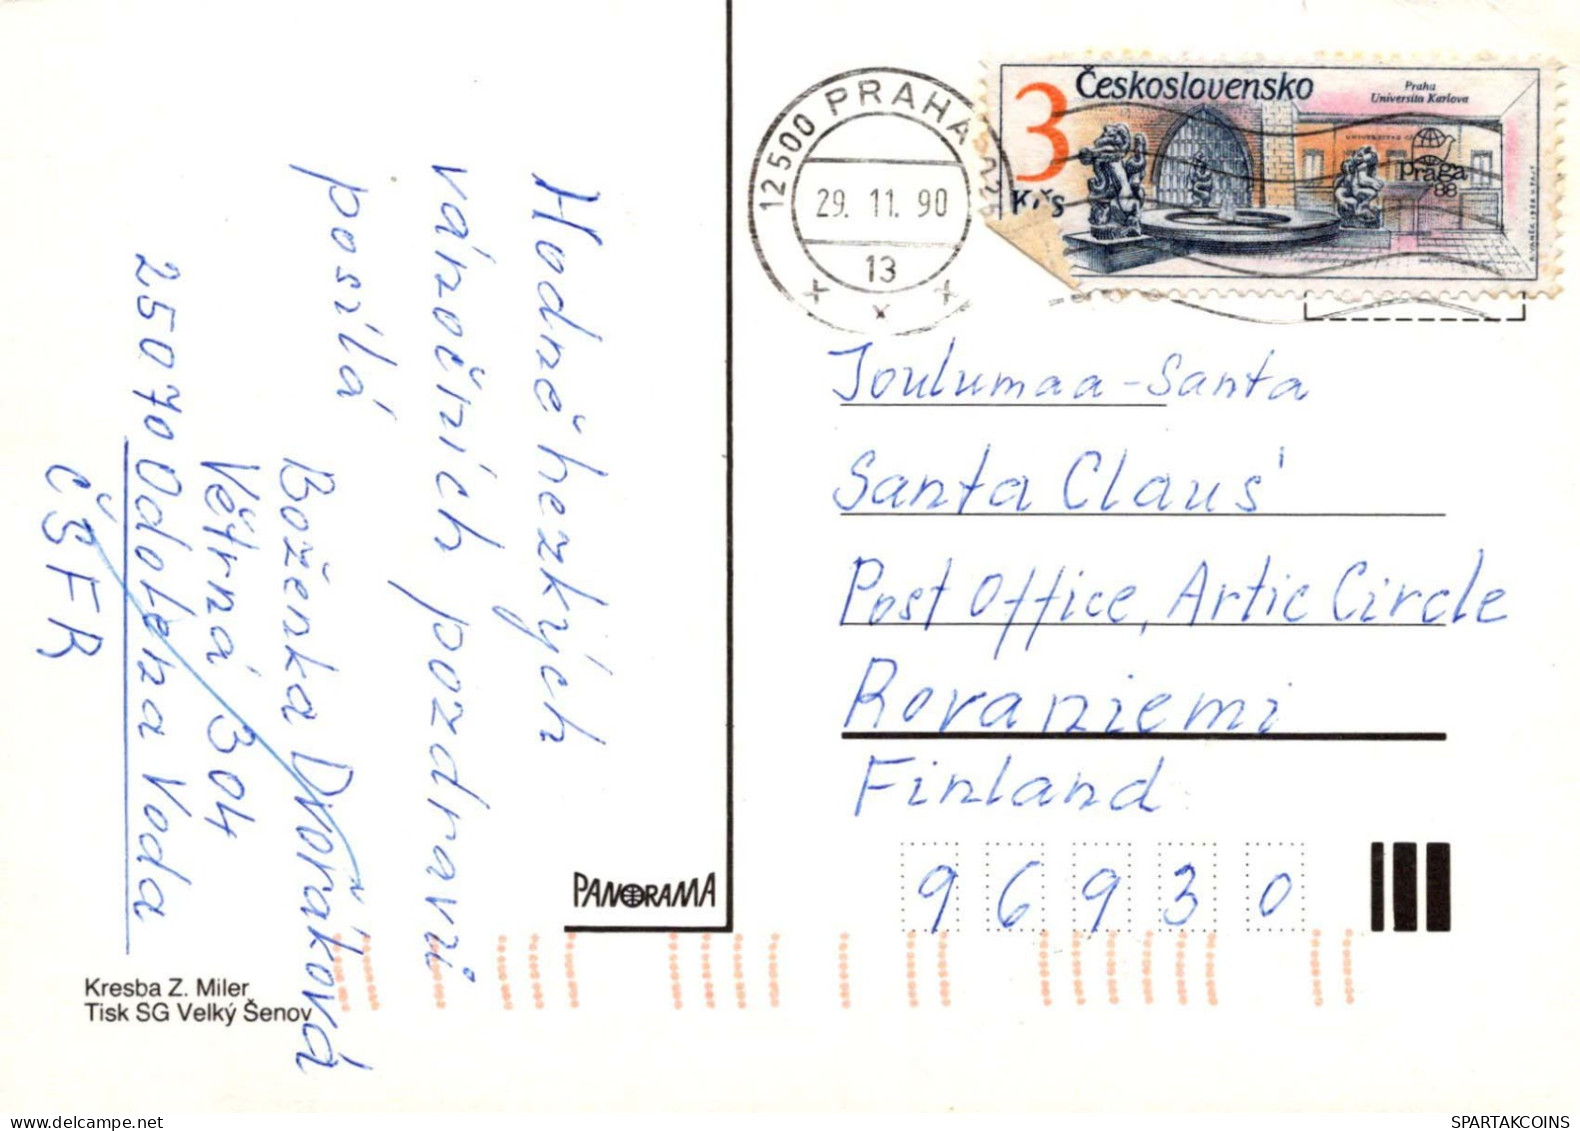 Hodně hezkých
vánočních pozdravů
posílá
Boženka Dvořáková
Větrná 304
25070 Odolena Voda
ČSFR
Kresba Z. Miler
Tisk SG Velký Šenov
PANORAMA
12500 PRAHA 
29. 11. 90
13
3 Kčs
Československo
Praha
Universita Karlova
Praga
88
Joulumaa - Santa
Santa Claus'
Post Office, Artic Circle
Rovaniemi
Finland
96930
delcampe.net
SPARTAKCOINS